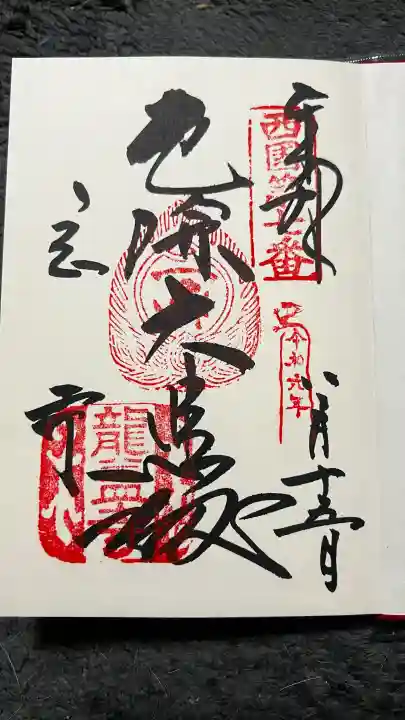 奉拝
西國第七番
令和六年
八月十五日
厄除大悲殿
龍蓋寺
岡寺